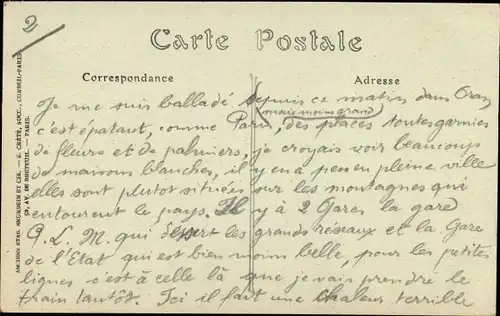 2
Carte Postale
Correspondance
Adresse
ANCIENS ETAB. NEURDEIN ET CIE. — E. CRÉTÉ, SUCC., CORBEIL-PARIS
52, AV. DE BRETEUIL, PARIS.
Je me suis balladé depuis ce matin dans Oran
mais moins grand
c'est épatant, comme Paris, des places toutes garnies
de fleurs et de palmiers, je croyais voir beaucoup
de maisons blanches, il y en a peu en pleine ville
elles sont plutôt situées sur les montagnes qui
entourent le pays. Il y à 2 Gares la gare
P. L. M. qui dessert les grands réseaux et la Gare
de l'Etat qui est bien moins belle, pour les petites
lignes c'est à celle là que je vais prendre le
train tantôt. Ici il fait une chaleur terrible